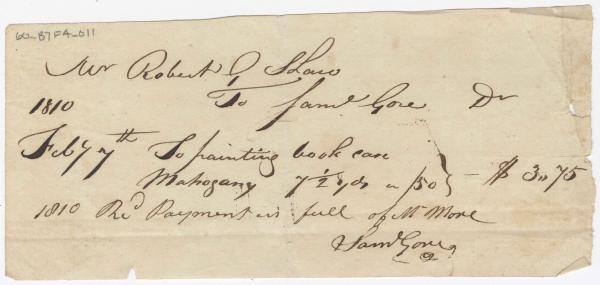 60-B7F4-011
Mr Robert G Shaw
1810 To Saml Gore Dr
Feby 7th To painting book case
Mahogany 7 1/2 yds a /50 } - $ 3,,75
1810 Recd Payment in full of Mr More
Saml Gore